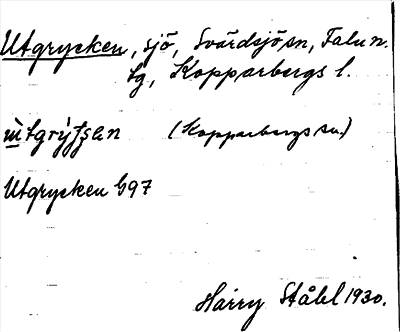 Utgrycken, sjö, Svärdsjö sn, Falu n.
tg, Kopparbergs l.
(Kopparbergs sn)
Utgrycken G97
Harry Ståhl 1930.